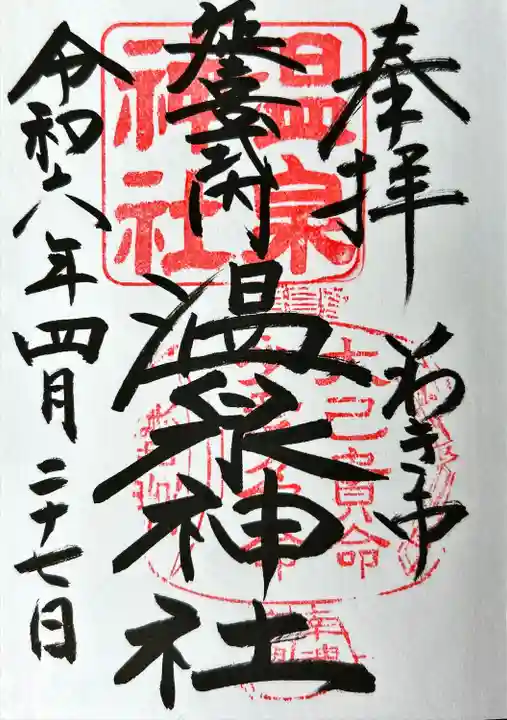 奉拝
いわき市
延喜式内
温泉神社
令和六年四月二十七日
温泉
神社
大己貴命